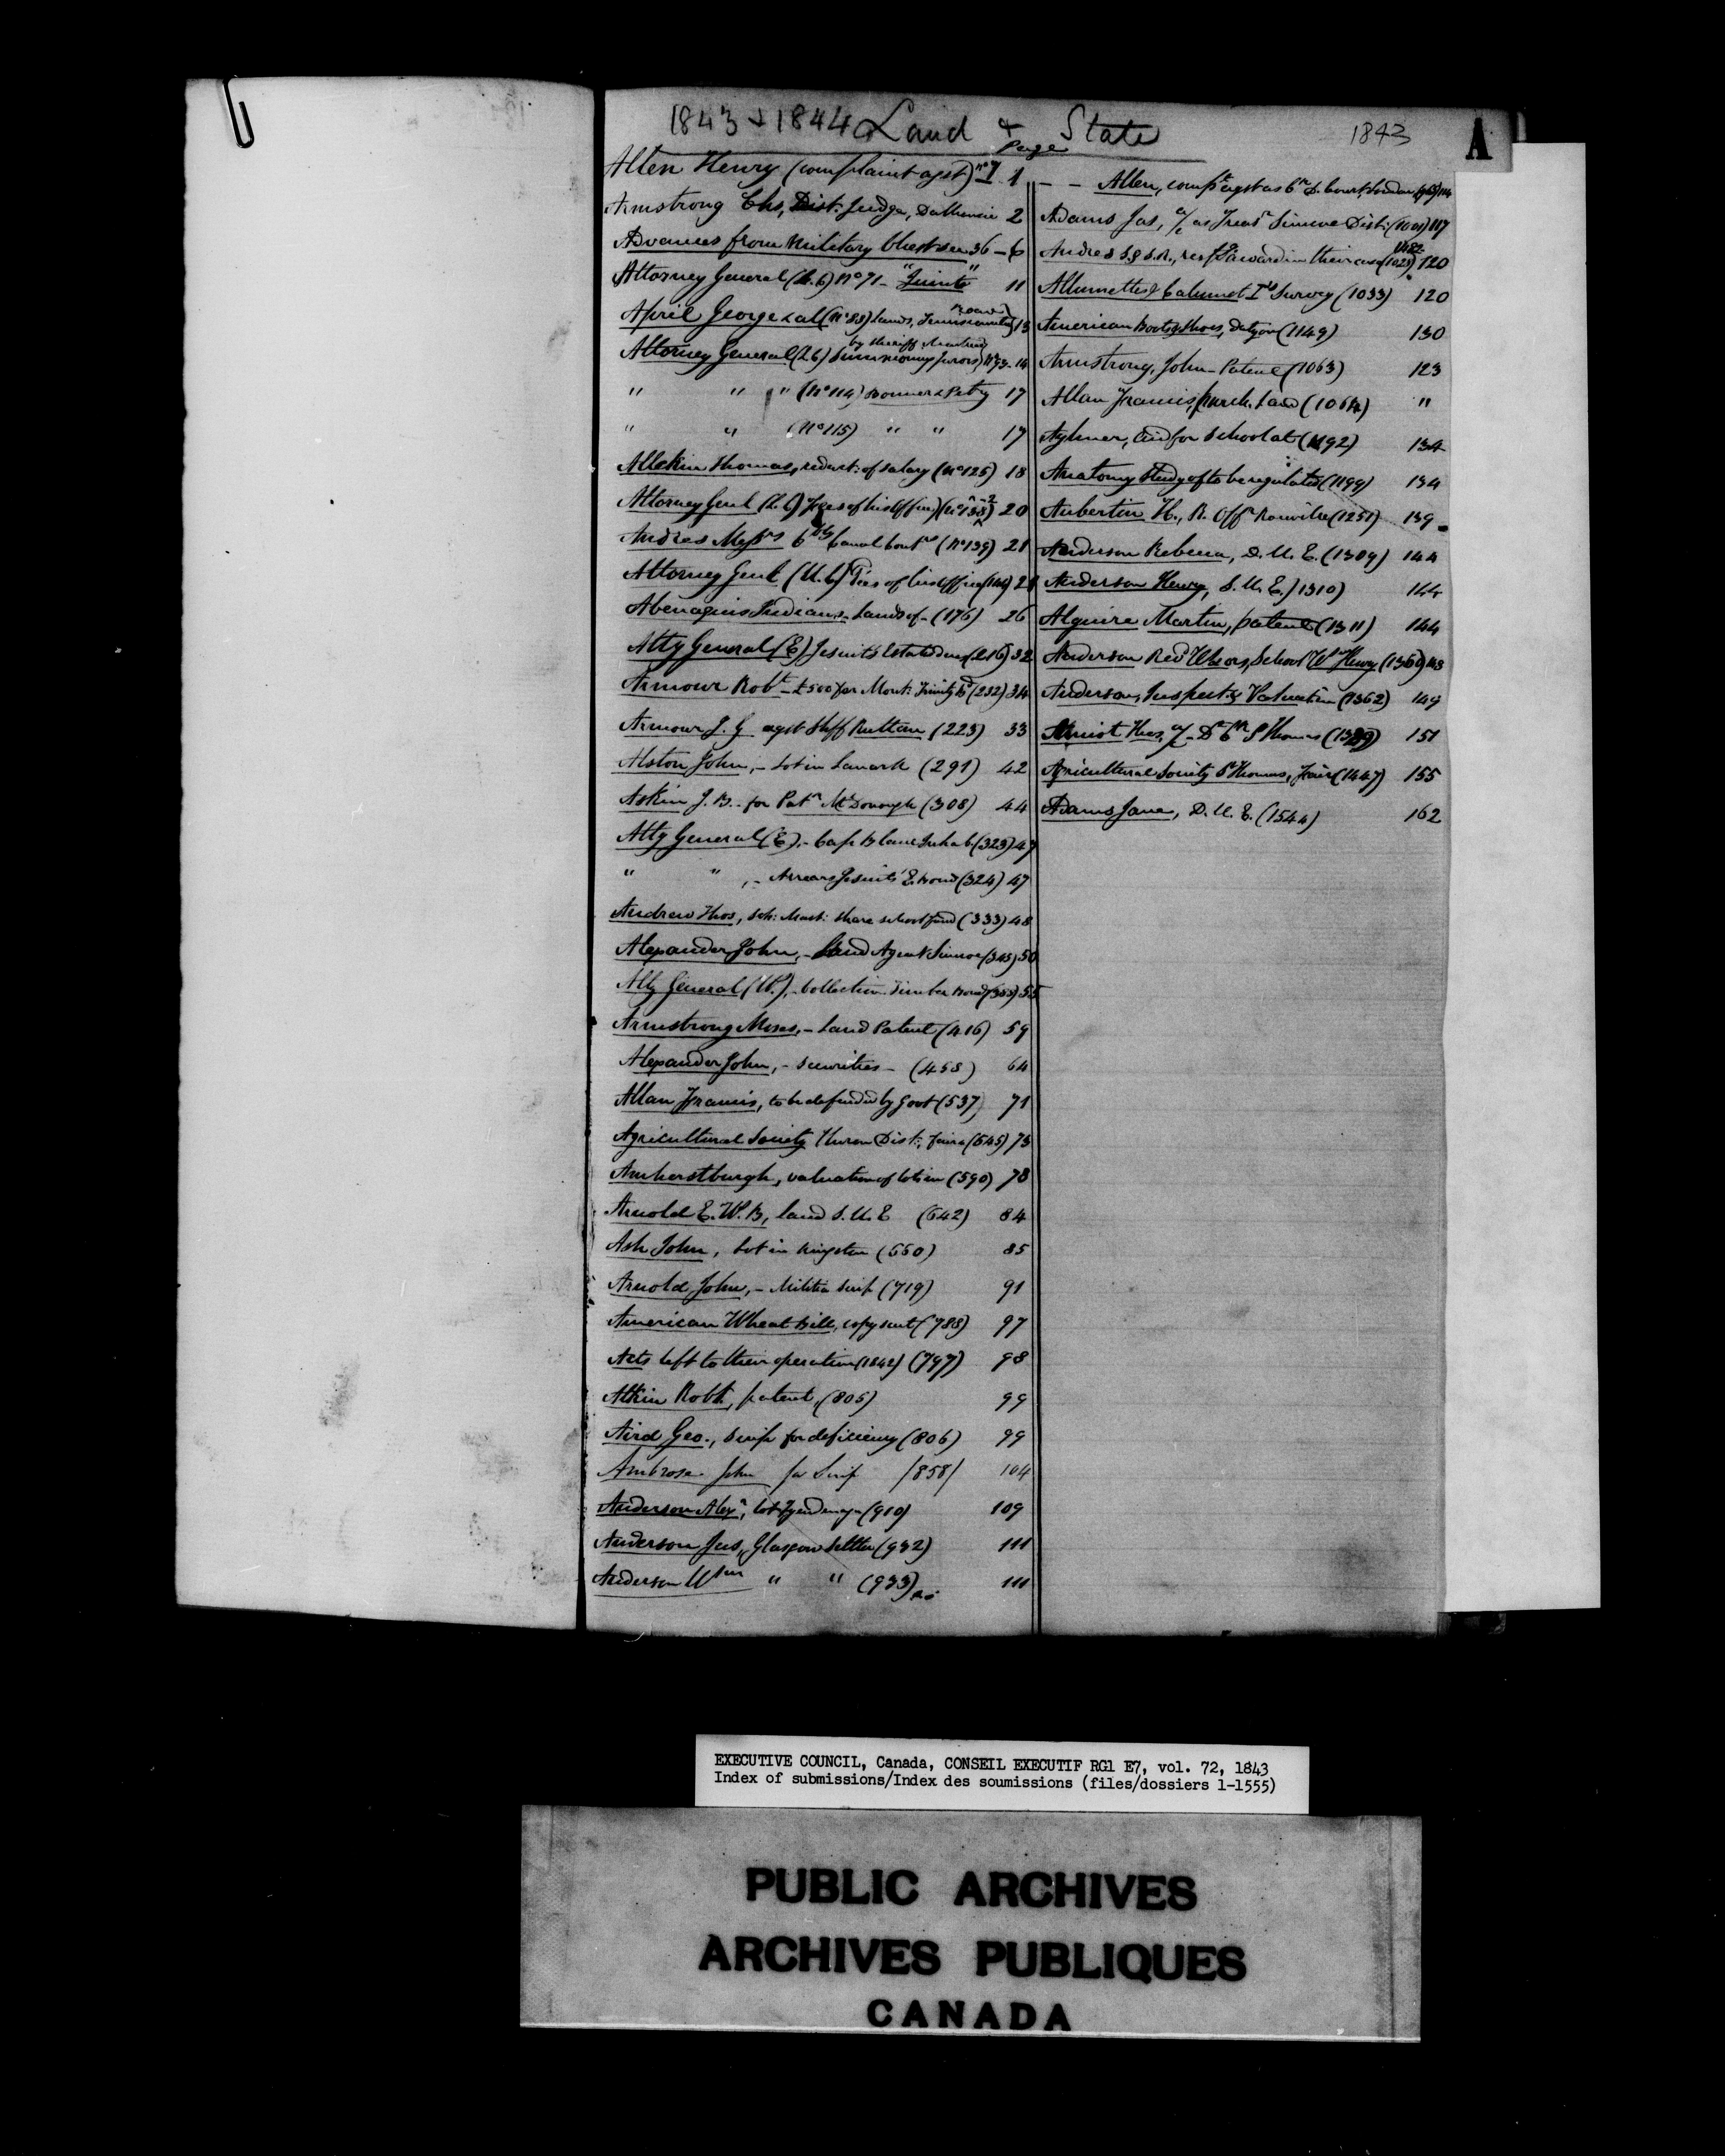 1843 & 1844 Land & State
1843
A
Page
Allen Henry (complaint agst) No 1 1
Armstrong Chs, Dist. Judge, Dalhousie 2
Advances from Military Chest 36 - 6
Attorney General (L.C) No 71 11
April George & al (No 88) Lands, 13
by Sheriff
Attorney General (L.C) Summoning Jurors, No 93 - 14
" " " (No 114) Bonner & Petry 17
" " (No 115) " " 17
Allekin Thomas, reduct: of salary (No 125) 18
Attorney Genl (L.C) Fees of his Office 20
Andres Messrs Canal Contrs (No 139) 21
Attorney Genl (U.C) Fees of his Office 21
Abenaquis Indians - Lands of - (176) 26
Atty General (E) Jesuits Estates (216) 32
Armour Robt - £500 for Mont: Trinity (232) 34
Armour J. G. agst Shff Ruttan (223) 33
Alston John, - Lot in Lanark (291) 42
Askin J. B. for Patk McDonough (308) 44
Atty General (E), - Cap Blanc Inhab (323) 47
" " , - Arrears Jesuits' E. (324) 47
Andrew Thos, Sch: Mast: share school fund (333) 48
Alexander John, - Land Agent Simcoe (345) 50
Atty General (W.), - Collection Timber Bond 55
Armstrong Moses, - Land Patent (416) 59
Alexander John, - Securities - (458) 64
Allan Francis, to be defended by Govt (537) 71
Agricultural Society Huron Dist:, fairs (545) 73
Amherstburgh, valuation of lots in (590) 78
Arnold E. W. B, land S. U. E (642) 84
Ash John, Lot in Kingston (650) 85
Arnold John, - Militia Scrip (719) 91
American Wheat Bill, copy sent (788) 97
Acts left to their operation (1842) (797) 98
Atkin Robt, patent, (805) 99
Aird Geo., Scrip for deficiency (806) 99
Ambrose John for Scrip (858) 104
Anderson Alexr, lot Tyendenaga (910) 109
Anderson Jas, Glasgow Settler (932) 111
Anderson Wm " " (933) 111
- - Allen, compt agst as
Adams Jas, a/c as Treasr Simcoe Dist: (1001) 117
Andres S. & S. R., resp. award in their case (1029) 120
Allumettes & Calumet Ids Survey (1033) 120
American Boots & Shoes, duty on (1149) 130
Armstrong, John - Patent (1063) 123
Allan Francis, purch. Land (1064) "
Aylmer, aid for School at (1192) 134
Anatomy study of to be regulated (1199) 134
Aubertin H., R. Offr Rouville (1251) 139
Anderson Rebecca, D. U. E. (1309) 144
Anderson Henry, S. U. E. (1310) 144
Alguire Martin, patent (1311) 144
Anderson Revd School Wm Henry (1360) 148
Anderson, Inspect & Valuation (1362) 149
Thos, a/c - St Thomas 151
Agricultural Society St Thomas, Fair (1447) 155
Adams Jane, D. U. E. (1544) 162
EXECUTIVE COUNCIL, Canada, CONSEIL EXECUTIF RG1 E7, vol. 72, 1843
Index of submissions/Index des soumissions (files/dossiers 1-1555)
PUBLIC ARCHIVES
ARCHIVES PUBLIQUES
CANADA